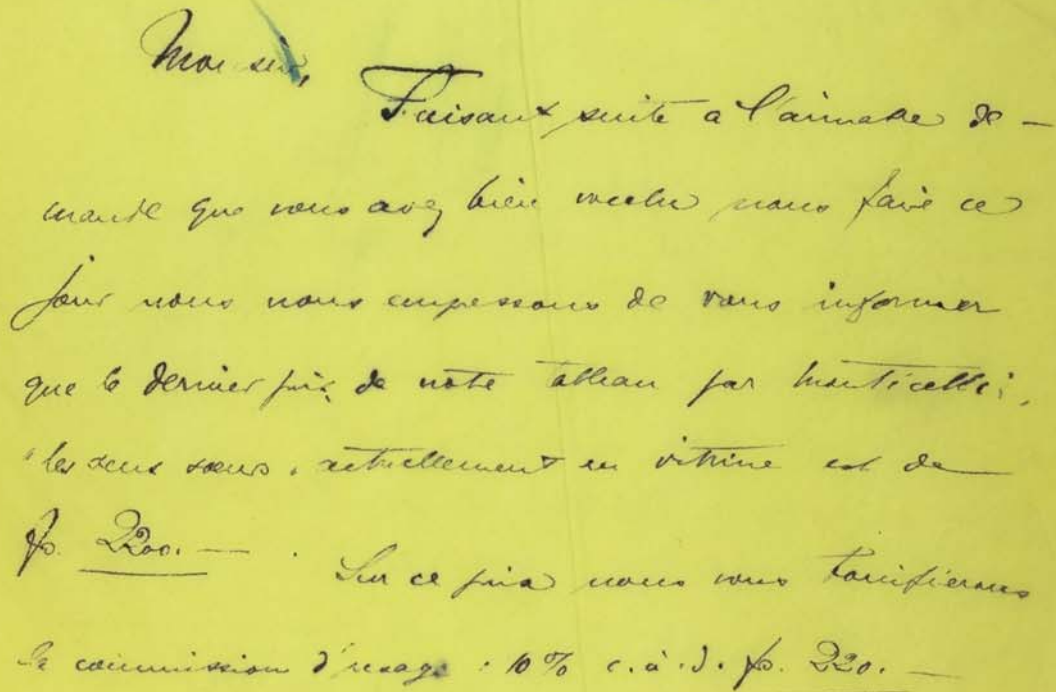 Monsieur,
Faisant suite à l'aimable de-
mande que vous avez bien voulu nous faire ce
jour nous nous empressons de vous informer
que le dernier prix de notre tableau par Monticelli,
"les deux sœurs, actuellement en vitrine est de
fr. 2200.—.
Sur ce prix nous vous bonifierons
la commission d'usage : 10% c.à.d. fr. 220.—